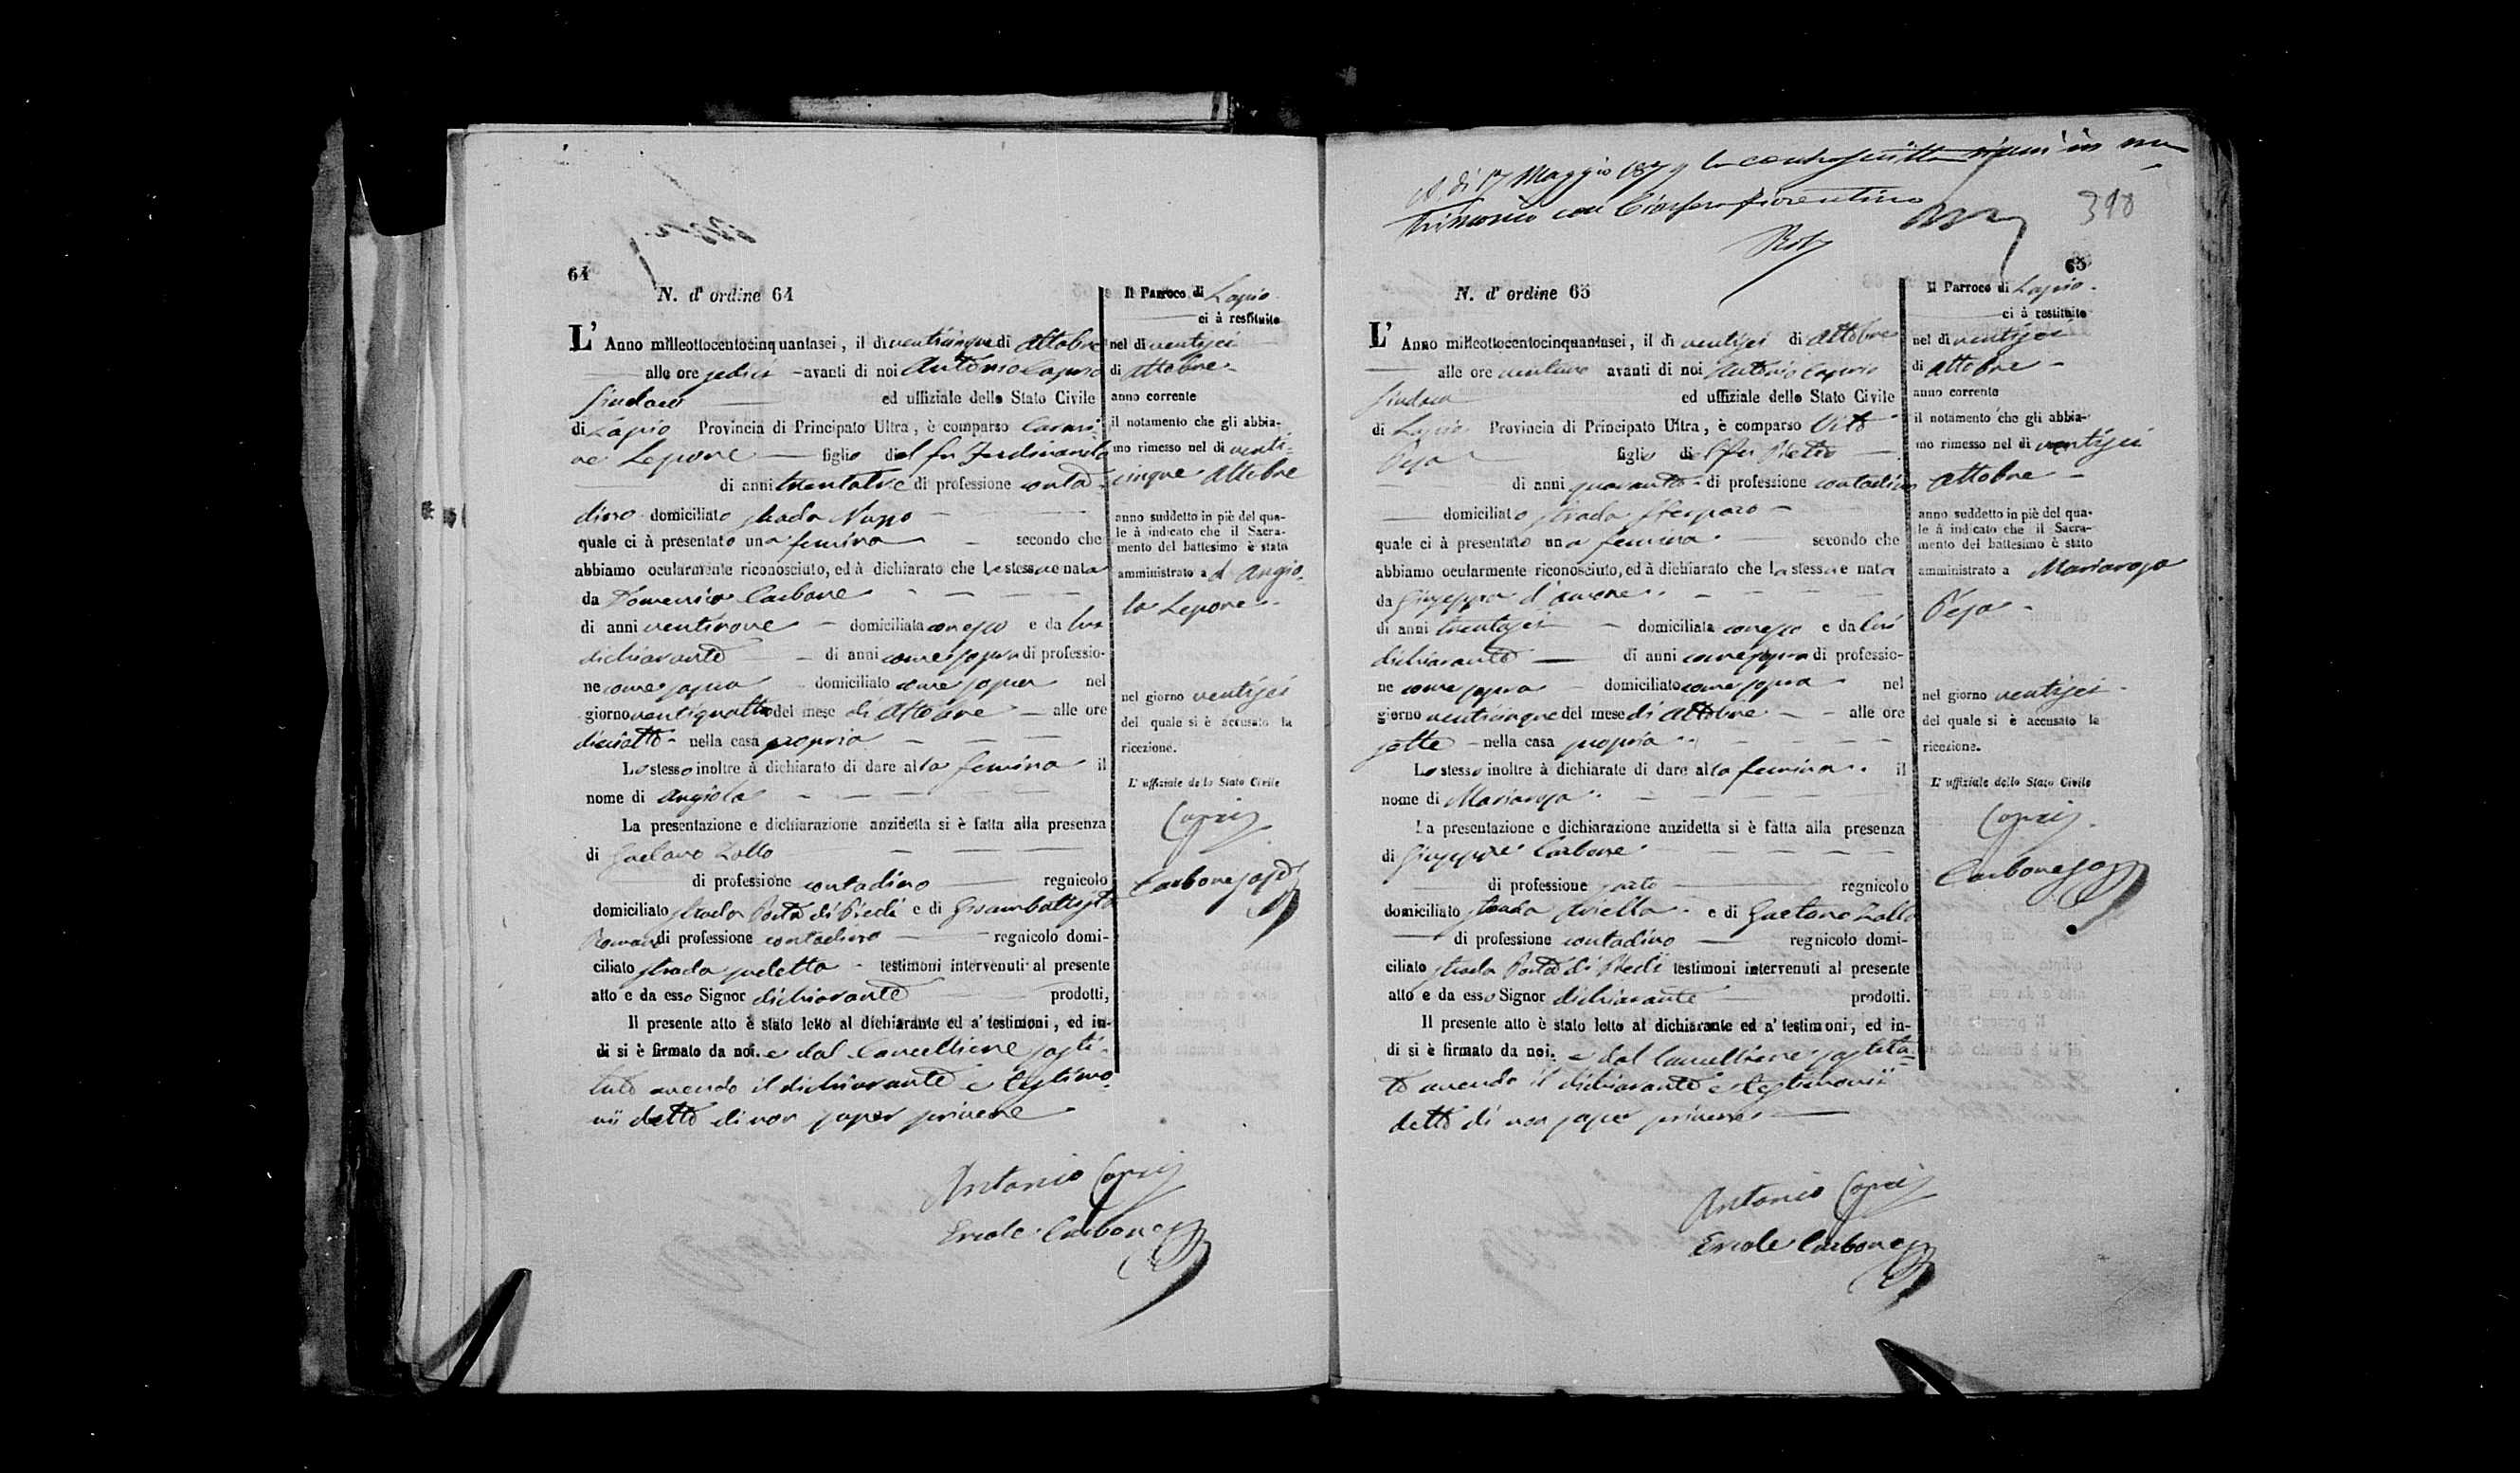 64
N. d' ordine 64
L' Anno milleottocentocinquantasei, il dì venticinque di Ottobre
alle ore sedici avanti di noi Antonio Caprio
Sindaco ed uffiziale dello Stato Civile
di Lapio Provincia di Principato Ultra, è comparso Carmi-
ne Lepore figlio del fu Ferdinando
di anni trentatre di professione conta-
dino domiciliato strada Nuzzo
quale ci à presentato una femina secondo che
abbiamo ocularmente riconosciuto, ed à dichiarato che la stessa è nata
da Domenica Carbone
di anni ventinove domiciliata con esso e da lui
dichiarante di anni come sopra di professio-
ne come sopra domiciliato come sopra nel
giorno ventiquattro del mese di Ottobre alle ore
diciotto nella casa propria
Lo stesso inoltre à dichiarato di dare alla femina il
nome di Angiola
La presentazione e dichiarazione anzidetta si è fatta alla presenza
di Gaetano Zollo
di professione contadino regnicolo
domiciliato strada Porta di Piedi e di Giambattista
Romano di professione contadino regnicolo domi-
ciliato strada testimoni intervenuti al presente
atto e da esso Signor dichiarante prodotti,
Il presente atto è stato letto al dichiarante ed a' testimoni, ed in-
di si è firmato da noi. e dal Cancelliere sosti-
tuto avendo il dichiarante e testimo-
nii detto di non saper scrivere
Antonio Caprio
Ercole Carbone
Il Parroco di Lapio
ci à restituito
nel dì ventisei
di Ottobre
anno corrente
il notamento che gli abbia-
mo rimesso nel dì venti-
cinque Ottobre
anno suddetto in piè del qua-
le à indicato che il Sacra-
mento del battesimo è stato
amministrato a d Angio-
la Lepore
nel giorno ventisei
del quale si è accusato la
ricezione.
L' uffiziale dello Stato Civile
Caprio
Carbone sost
A dì 17 Maggio 1879 la controscritta si unì in ma-
trimonio con Fiorentino
398
65
N. d' ordine 65
L' Anno milleottocentocinquantasei, il dì ventisei di Ottobre
alle ore ventuno avanti di noi Antonio Caprio
Sindaco ed uffiziale dello Stato Civile
di Lapio Provincia di Principato Ultra, è comparso Vito
Pesa figlio del fu Pietro
di anni quaranta di professione contadino
domiciliato strada
quale ci à presentato una femina secondo che
abbiamo ocularmente riconosciuto, ed à dichiarato che la stessa è nata
da Giuseppa d'Amore
di anni trentasei domiciliata con esso e da lui
dichiarante di anni come sopra di professio-
ne come sopra domiciliato come sopra nel
giorno venticinque del mese di Ottobre alle ore
sette nella casa propria
Lo stesso inoltre à dichiarato di dare alla femina il
nome di Mariarosa
La presentazione e dichiarazione anzidetta si è fatta alla presenza
di Giuseppe Carbone
di professione sarto regnicolo
domiciliato strada e di Gaetano Zollo
di professione contadino regnicolo domi-
ciliato strada Porta di Piedi testimoni intervenuti al presente
atto e da esso Signor dichiarante prodotti.
Il presente atto è stato letto al dichiarante ed a' testimoni, ed in-
di si è firmato da noi. e dal Cancelliere sostitu-
to avendo il dichiarante e testimonii
detto di non saper scrivere
Antonio Caprio
Ercole Carbone
Il Parroco di Lapio
ci à restituito
nel dì ventisei
di Ottobre
anno corrente
il notamento che gli abbia-
mo rimesso nel dì ventisei
Ottobre
anno suddetto in piè del qua-
le à indicato che il Sacra-
mento del battesimo è stato
amministrato a Mariarosa
Pesa
nel giorno ventisei
del quale si è accusato la
ricezione.
L' uffiziale dello Stato Civile
Caprio
Carbone so